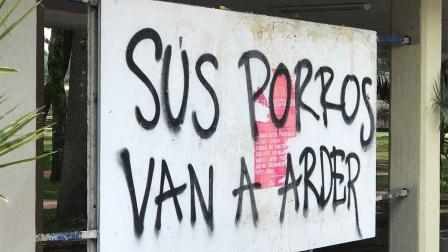 SÚS PORROS
VAN A ARDER